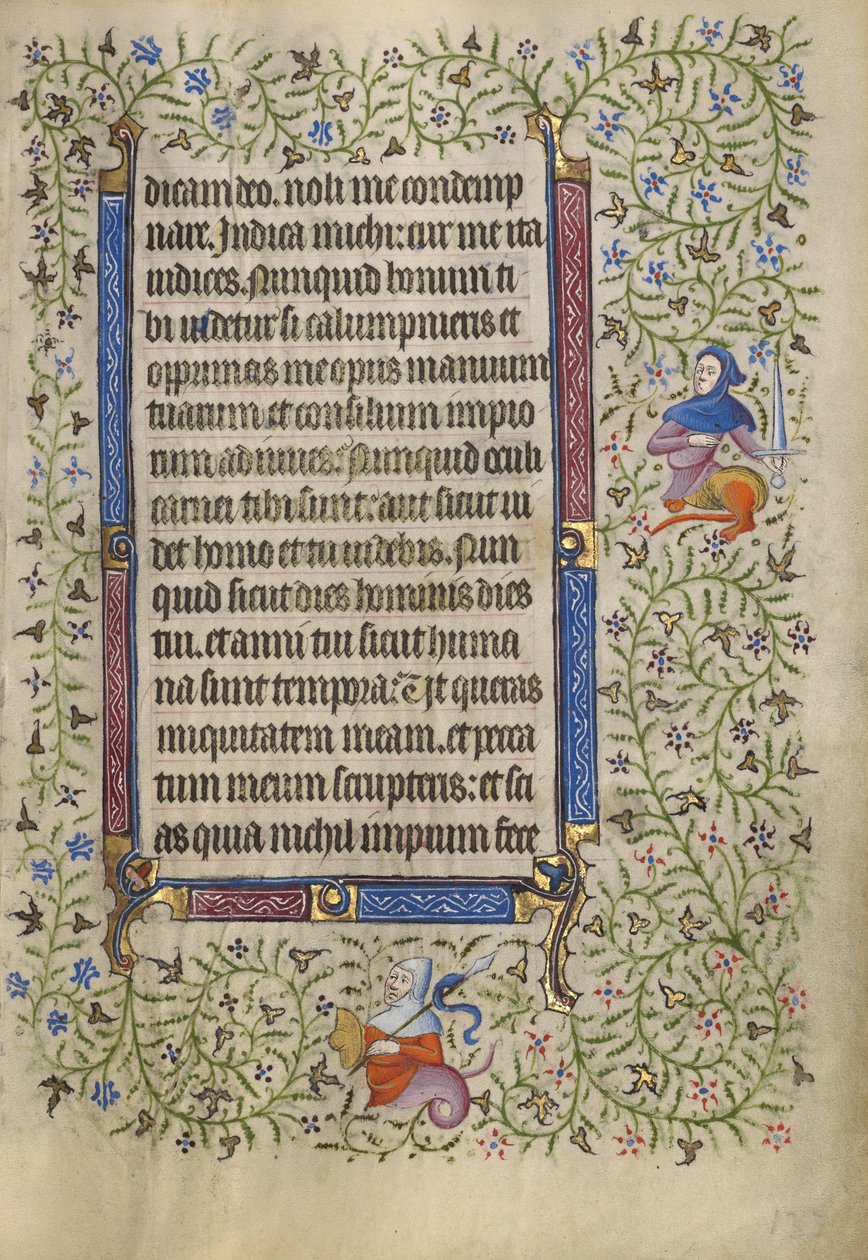 dicam deo. noli me condemp
nare. Indica michi: cur me ita
iudices. Nunquid bonum ti
bi uidetur si calumpnieris et
opprimas me opus manuum
tuarum et consilium impio
rum adiuues. Nunquid oculi
carnei tibi sunt: aut sicut ui
det homo et tu uidebis. Nun
quid sicut dies hominis dies
tui. et anni tui sicut huma
na sunt tempora. Ut queras
iniquitatem meam. et pecca
tum meum scrupteris: et sci
as quia nichil impium fece